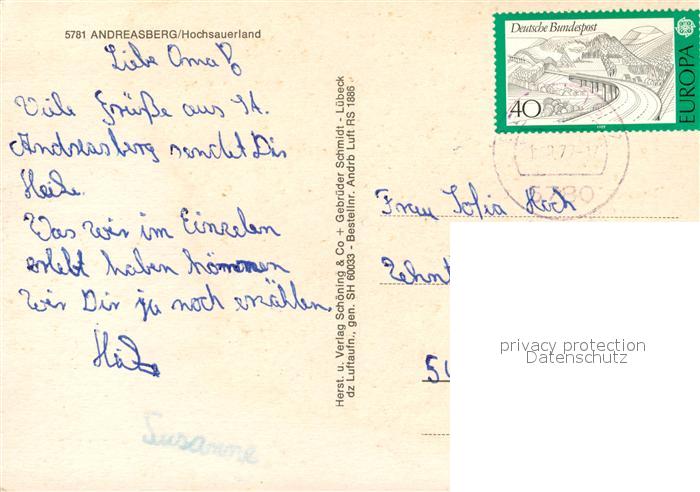 5781 ANDREASBERG/Hochsauerland
Liebe Oma
Viele Grüße aus St.
Andreasberg sendet Dir
Heike.
Was wir im Einzelen
erlebt haben können
wir Dir ja noch erzählen.
Heike
Susanne
Herst. u. Verlag Schöning & Co + Gebrüder Schmidt - Lübeck
dz Luftaufn., gen. SH 60033 - Bestellnr. Andrb Luft RS 1886
Deutsche Bundespost
40
EUROPA
5780
Frau Sofia Koch
Zehnt
54
privacy protection
Datenschutz